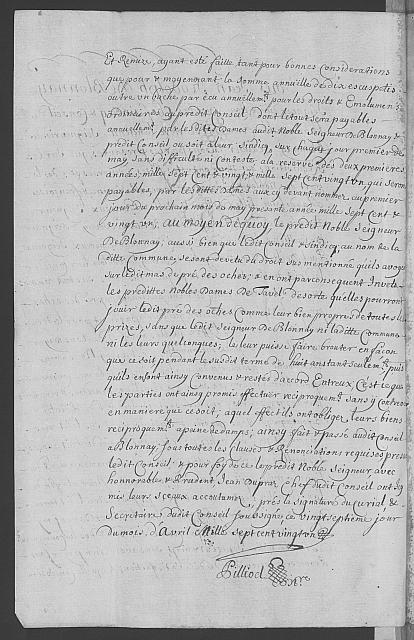 Et Remize, ayant esté faitte tant pour bonnes Considerations
que pour & moyennant la somme annuelle de dix escus petits
outre un buche par ècu annuellemt. pour les droits & Emolumens
ordinaires audit Conseil, dont le tout sera payables
annuellemt. par lesdites Dames audit Noble Seigneur De Blonnay &
prédit Conseil ou soit à leur Sindicq, sur chaque jour premier de
may, sans difficulté ni conteste, à la reserve des deux premieres
années, mille sept cent & vingt & mille sept cent vingt un, qui seront
payables, par lesdittes Dames aux cy devant nommez au premier
jour du prochain mois de may presente année mille sept cent &
vingt un; au moyen dequoy, le prédit Noble Seigneur
De Blonnay, aussi bien que ledit conseil & Sindicq, au nom de la
ditte Commune, se sont devetu du droit sus mentionné quils avoyent
sur ledit mas de pré des oches, & en ont par consequent Investu
les prédittes Nobles Dames De Tavel desorte quelles pourront
jouir ledit pré des oches comme leur bien propre de toutes les
prizes, sans que ledit Seigneur De Blonnay ni laditte Commune
ni les leurs quelconques, le leur puisse faire brouter en facon
que ce soit pendant le susdit terme de huit ans seulemt., puis
quils en sont ainsy Convenus & restés d'accord Entreux, C'est ce que
les parties ont ainsy promis effectuer reciproquemt. sans y contrevenir
en maniere que ce soit; à quel effect ils ont obligez leurs biens
reciproquemt. à peine de damps; ainsy fait & passé audit Conseil
à Blonnay, sous toutes les Clauses & Renonciations requises, presens
ledit Conseil, & pour foy de ce le prédit Noble Seigneur avec
honnorable & Prudent Jean Dupraz Chef dudit Conseil ont icy
mis leurs Sceaux accoutumez, prés la Signature du Curial &
Secretaire dudit Conseil soubsigné, ce vingt septiéme jour
du mois, d'Avril Mille sept cent vingt un
Pilliod Nre.